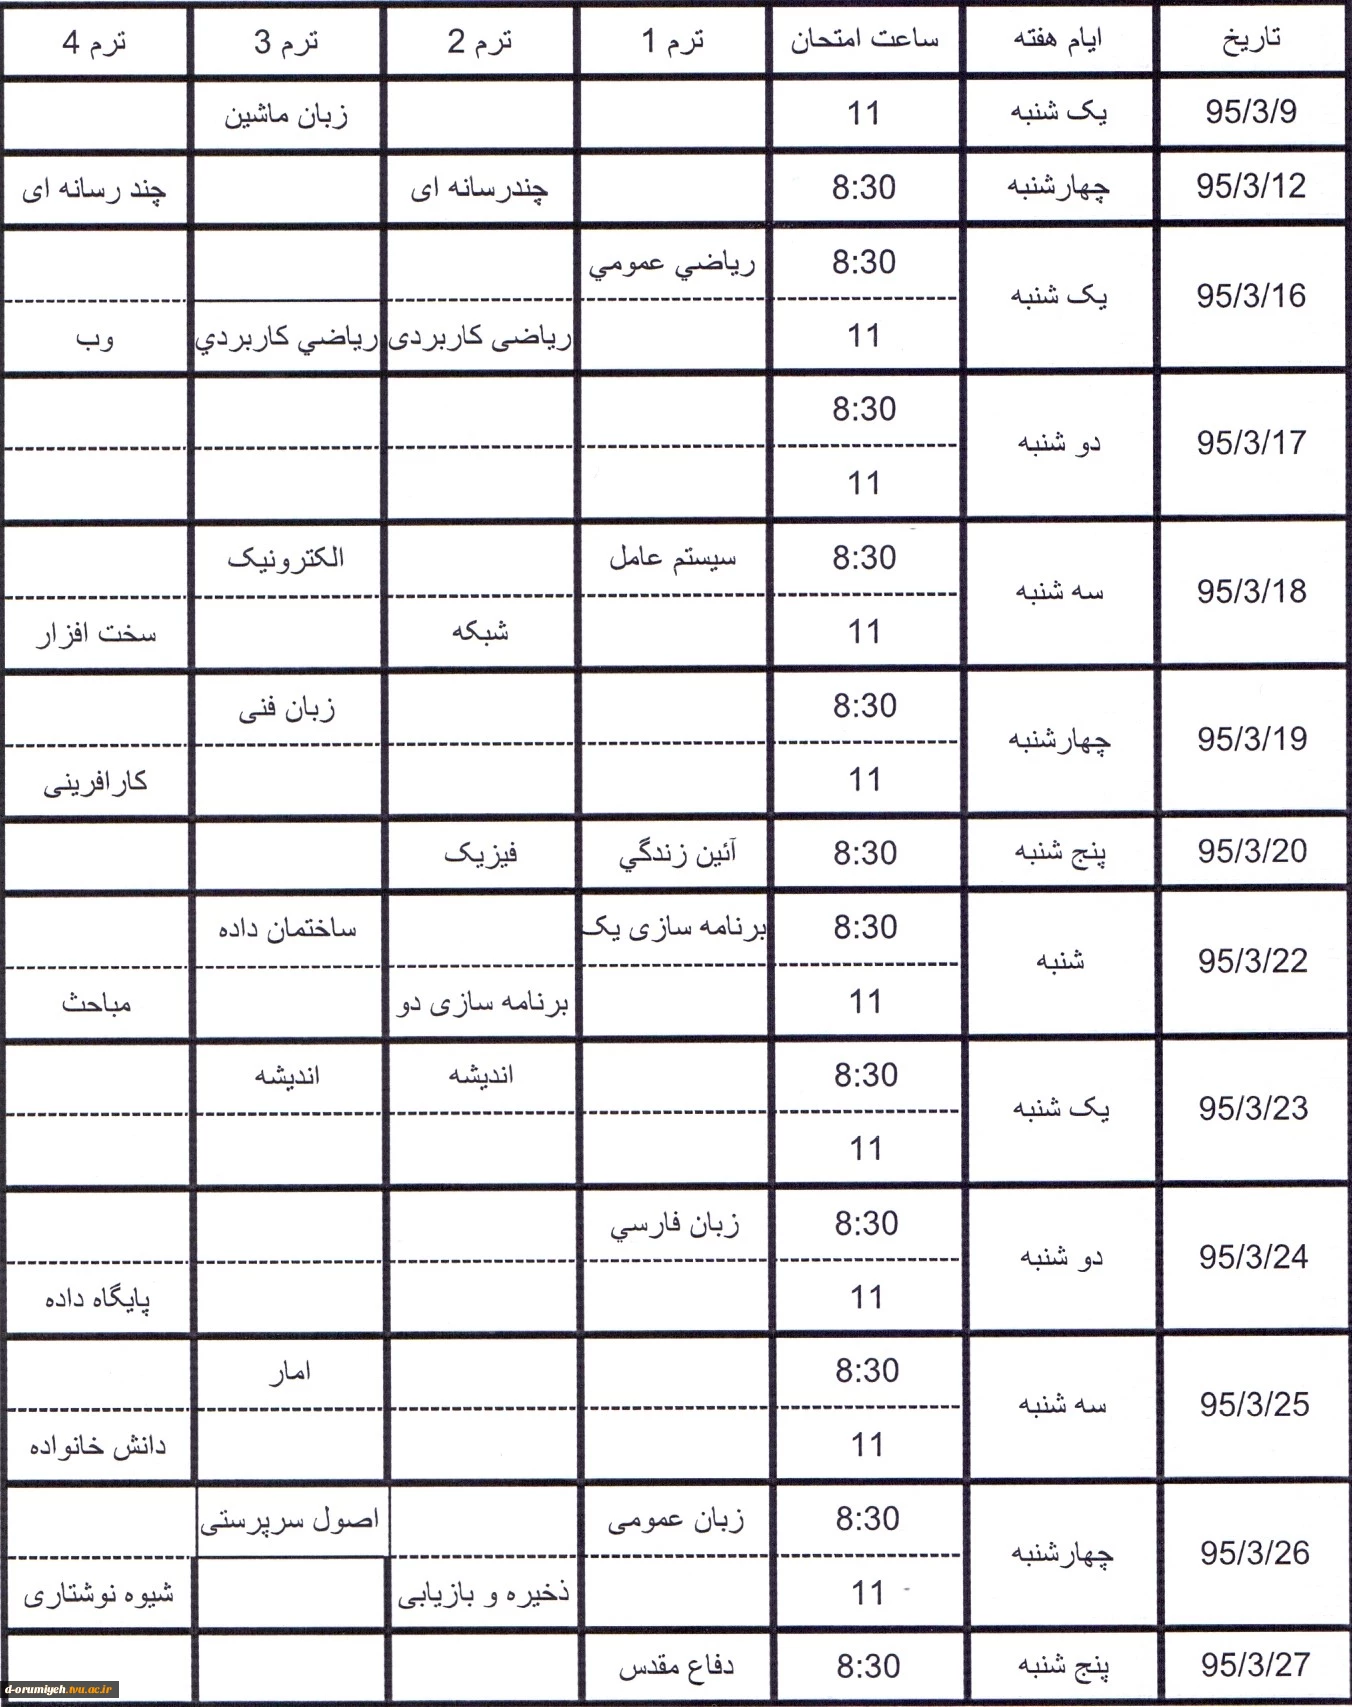 تاریخ ایام هفته ساعت امتحان ترم 1 ترم 2 ترم 3 ترم 4
95/3/9 یک شنبه 11 زبان ماشین
95/3/12 چهارشنبه 8:30 چندرسانه ای چند رسانه ای
95/3/16 یک شنبه 8:30 رياضي عمومي
11 ریاضی کاربردی رياضي کاربردي وب
95/3/17 دو شنبه 8:30
11
95/3/18 سه شنبه 8:30 سیستم عامل الکترونیک
11 شبکه سخت افزار
95/3/19 چهارشنبه 8:30 زبان فنی
11 کارافرینی
95/3/20 پنج شنبه 8:30 آئین زندگي فیزیک
95/3/22 شنبه 8:30 برنامه سازی یک ساختمان داده
11 برنامه سازی دو مباحث
95/3/23 یک شنبه 8:30 اندیشه اندیشه
11
95/3/24 دو شنبه 8:30 زبان فارسي
11 پایگاه داده
95/3/25 سه شنبه 8:30 امار
11 دانش خانواده
95/3/26 چهارشنبه 8:30 زبان عمومی اصول سرپرستی
11 ذخیره و بازیابی شیوه نوشتاری
95/3/27 پنج شنبه 8:30 دفاع مقدس
d-orumiyeh.tvu.ac.ir